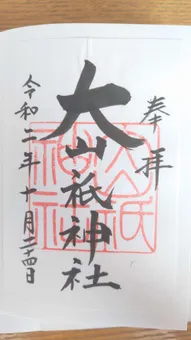 奉拝
大山祇神社
令和二年十月二十四日